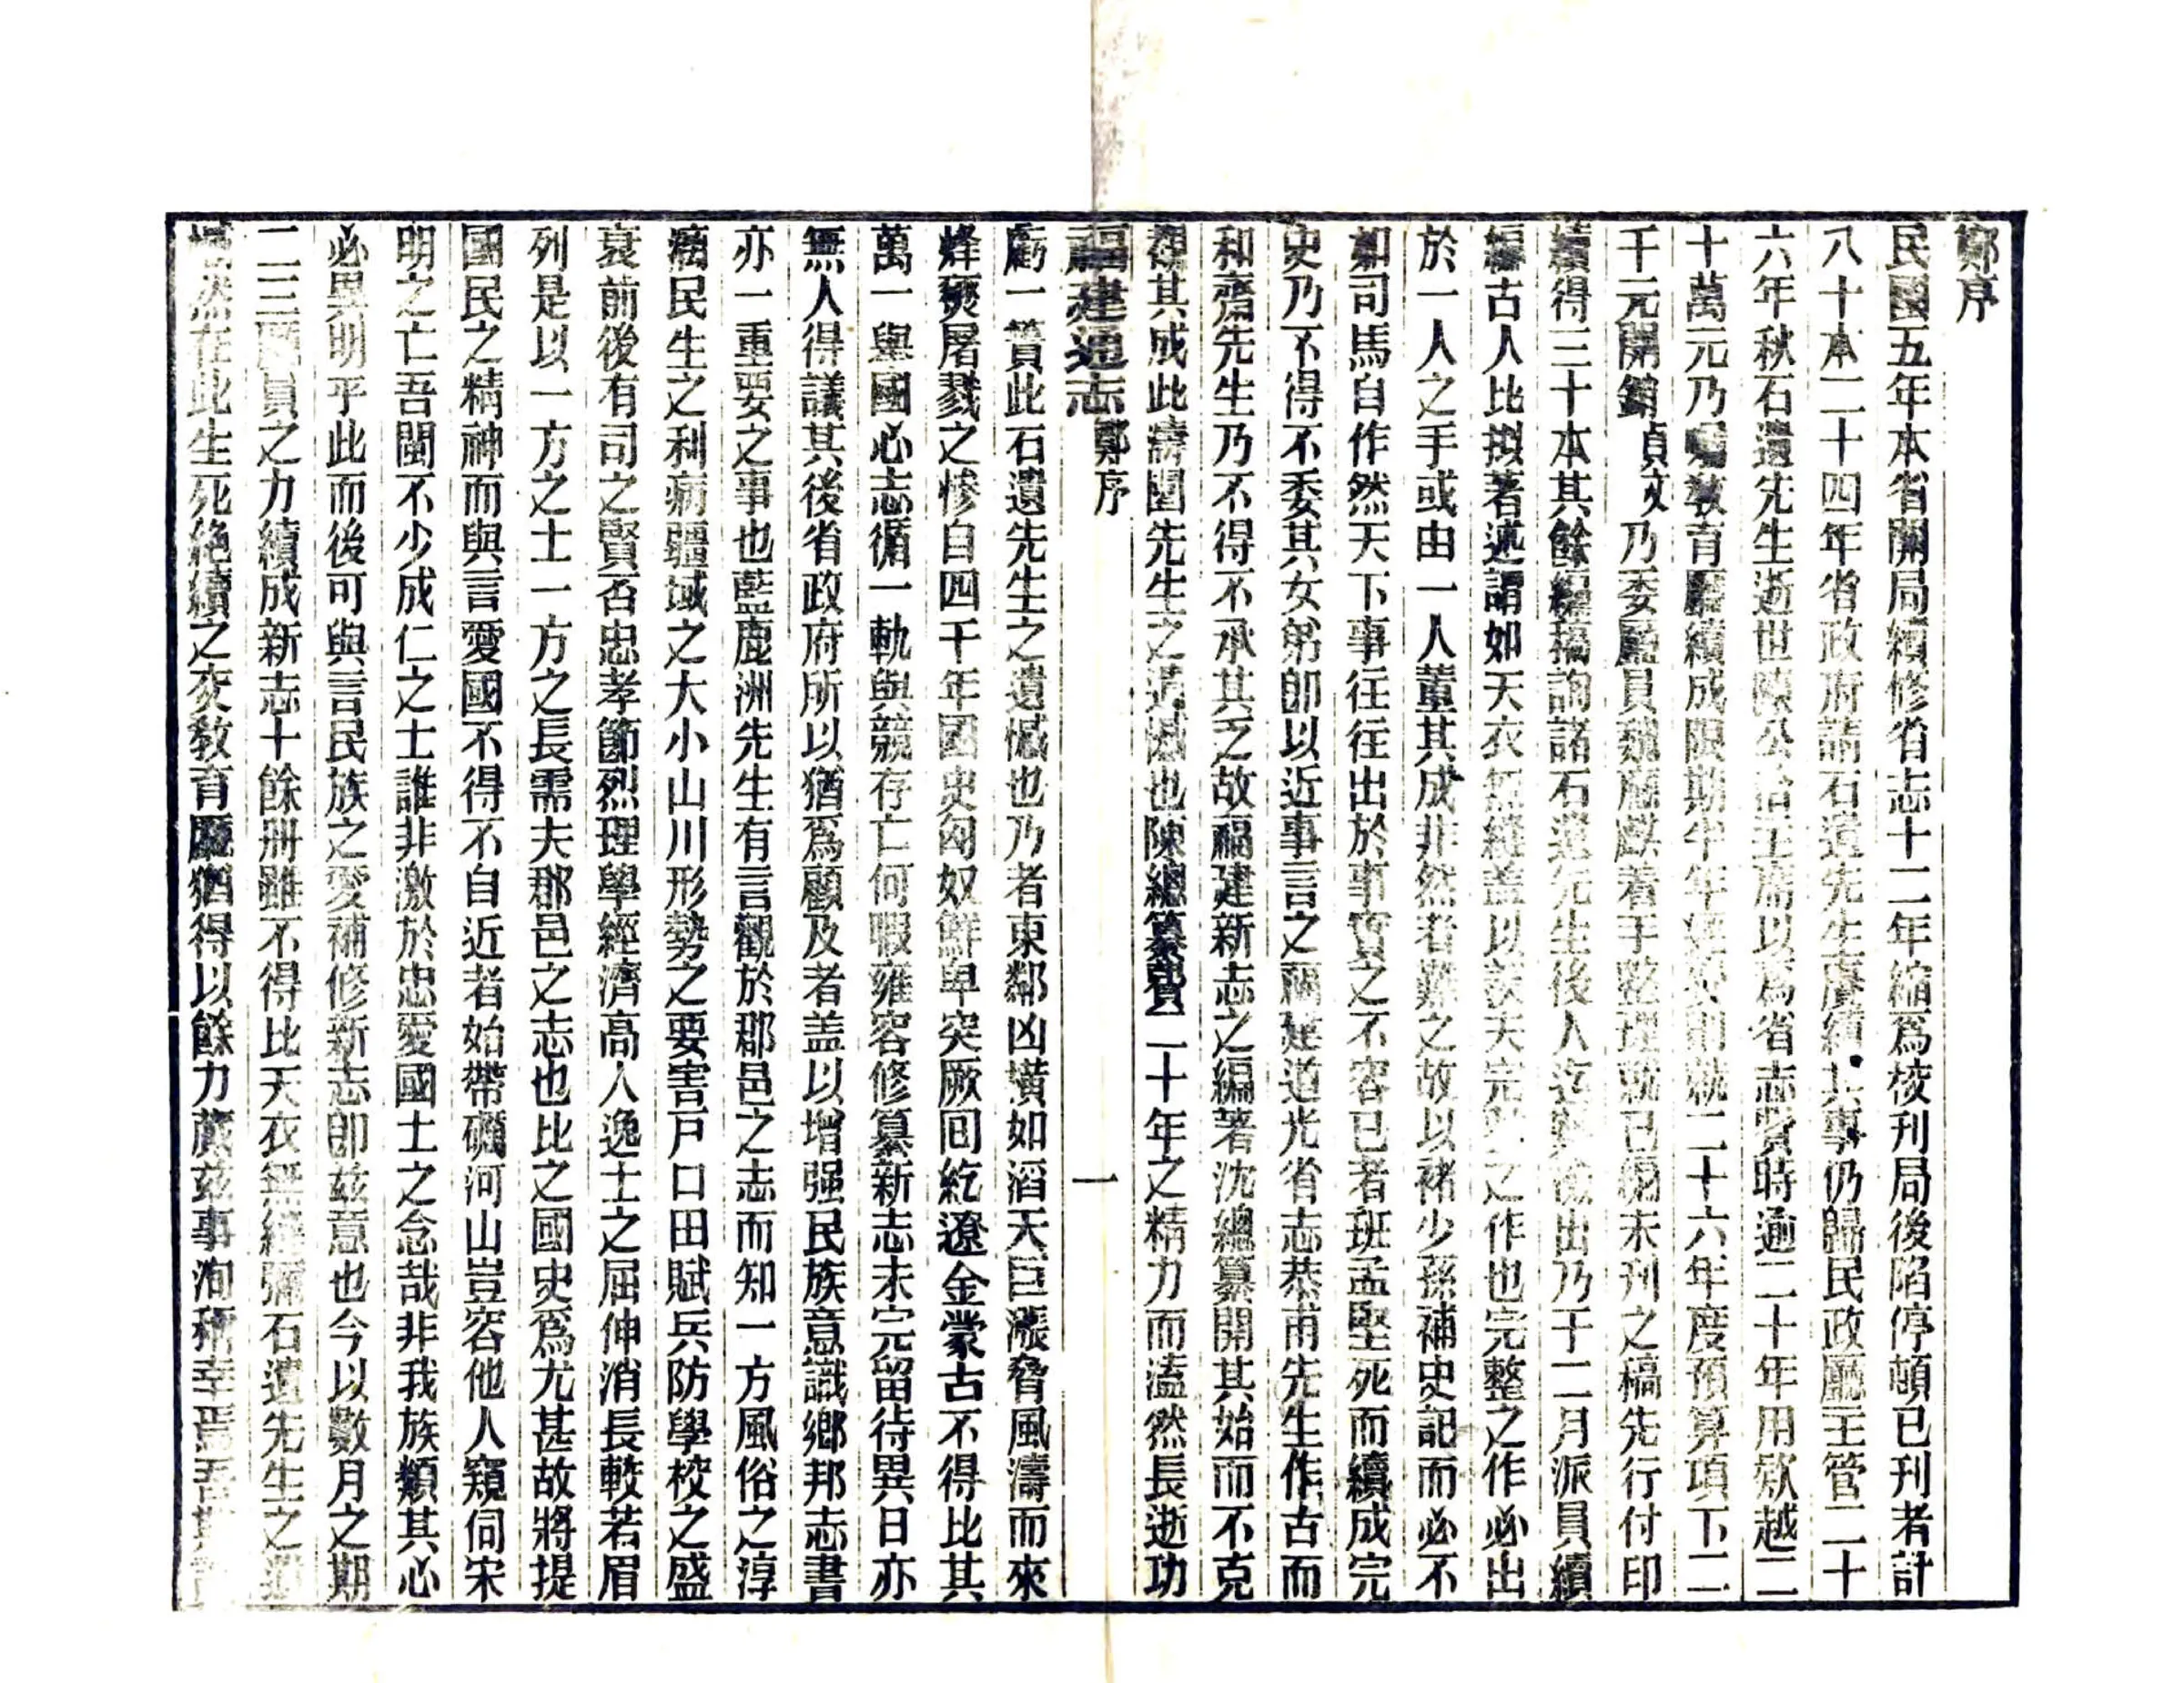 鄭序
民國五年本省開局續修省志十二年縮爲校刊局後陷停頓已刊者計
八十本二十四年省政府請石遺先生賡續其事仍歸民政廳主管二十
六年秋石遺先生逝世陳公洽主席以爲省志貲時逾二十年用款越二
十萬元乃囑教育廳續成限期半年經費卽就二十六年度預算項下二
千元開銷貞文乃委廳員魏應麒着手整理就已編未刊之稿先行付印
續得三十本其餘編稿詢諸石遺先生後人迄無檢出乃于二月派員續
編古人比擬著述謂如天衣無縫蓋以 天完 之作也完整之作必出
於一人之手或由一人董其成非然者難之故以褚少孫補史記而必不
如司馬自作然天下事往往出於事實之不容已者班孟堅死而續成完
史乃不得不委其女弟卽以近事言之福建道光省志恭甫先生作古而
和齋先生乃不得不承其乏故福建新志之編著沈總纂開其始而不克
覩其成此濤園先生之遺憾也陳總纂費二十年之精力而溘然長逝功
福建通志 鄭序 一
虧一簣此石遺先生之遺憾也乃者東鄰凶橫如滔天巨漲脅風濤而來
烽燹屠戮之慘自四千年國史匈奴鮮卑突厥回紇遼金蒙古不得比其
萬一舉國心志循一軌與競存亡何暇雍容修纂新志未完留待異日亦
無人得議其後省政府所以猶爲顧及者盖以增强民族意識鄉邦志書
亦一重要之事也藍鹿洲先生有言觀於郡邑之志而知一方風俗之淳
漓民生之利病疆域之大小山川形勢之要害戶口田賦兵防學校之盛
衰前後有司之賢否忠孝節烈理學經濟高人逸士之屈伸消長較若眉
列是以一方之士一方之長需夫郡邑之志也比之國史爲尤甚故將提
國民之精神而與言愛國不得不自近者始帶礪河山豈容他人窺伺宋
明之亡吾閩不少成仁之士誰非激於忠愛國土之念哉非我族類其心
必異明乎此而後可與言民族之愛補修新志卽茲意也今以數月之期
二三廳員之力續成新志十餘册雖不得比天衣無縫彌石遺先生之遺
憾然在此生死絶續之交教育廳猶得以餘力蕆茲事洵稱幸焉吾